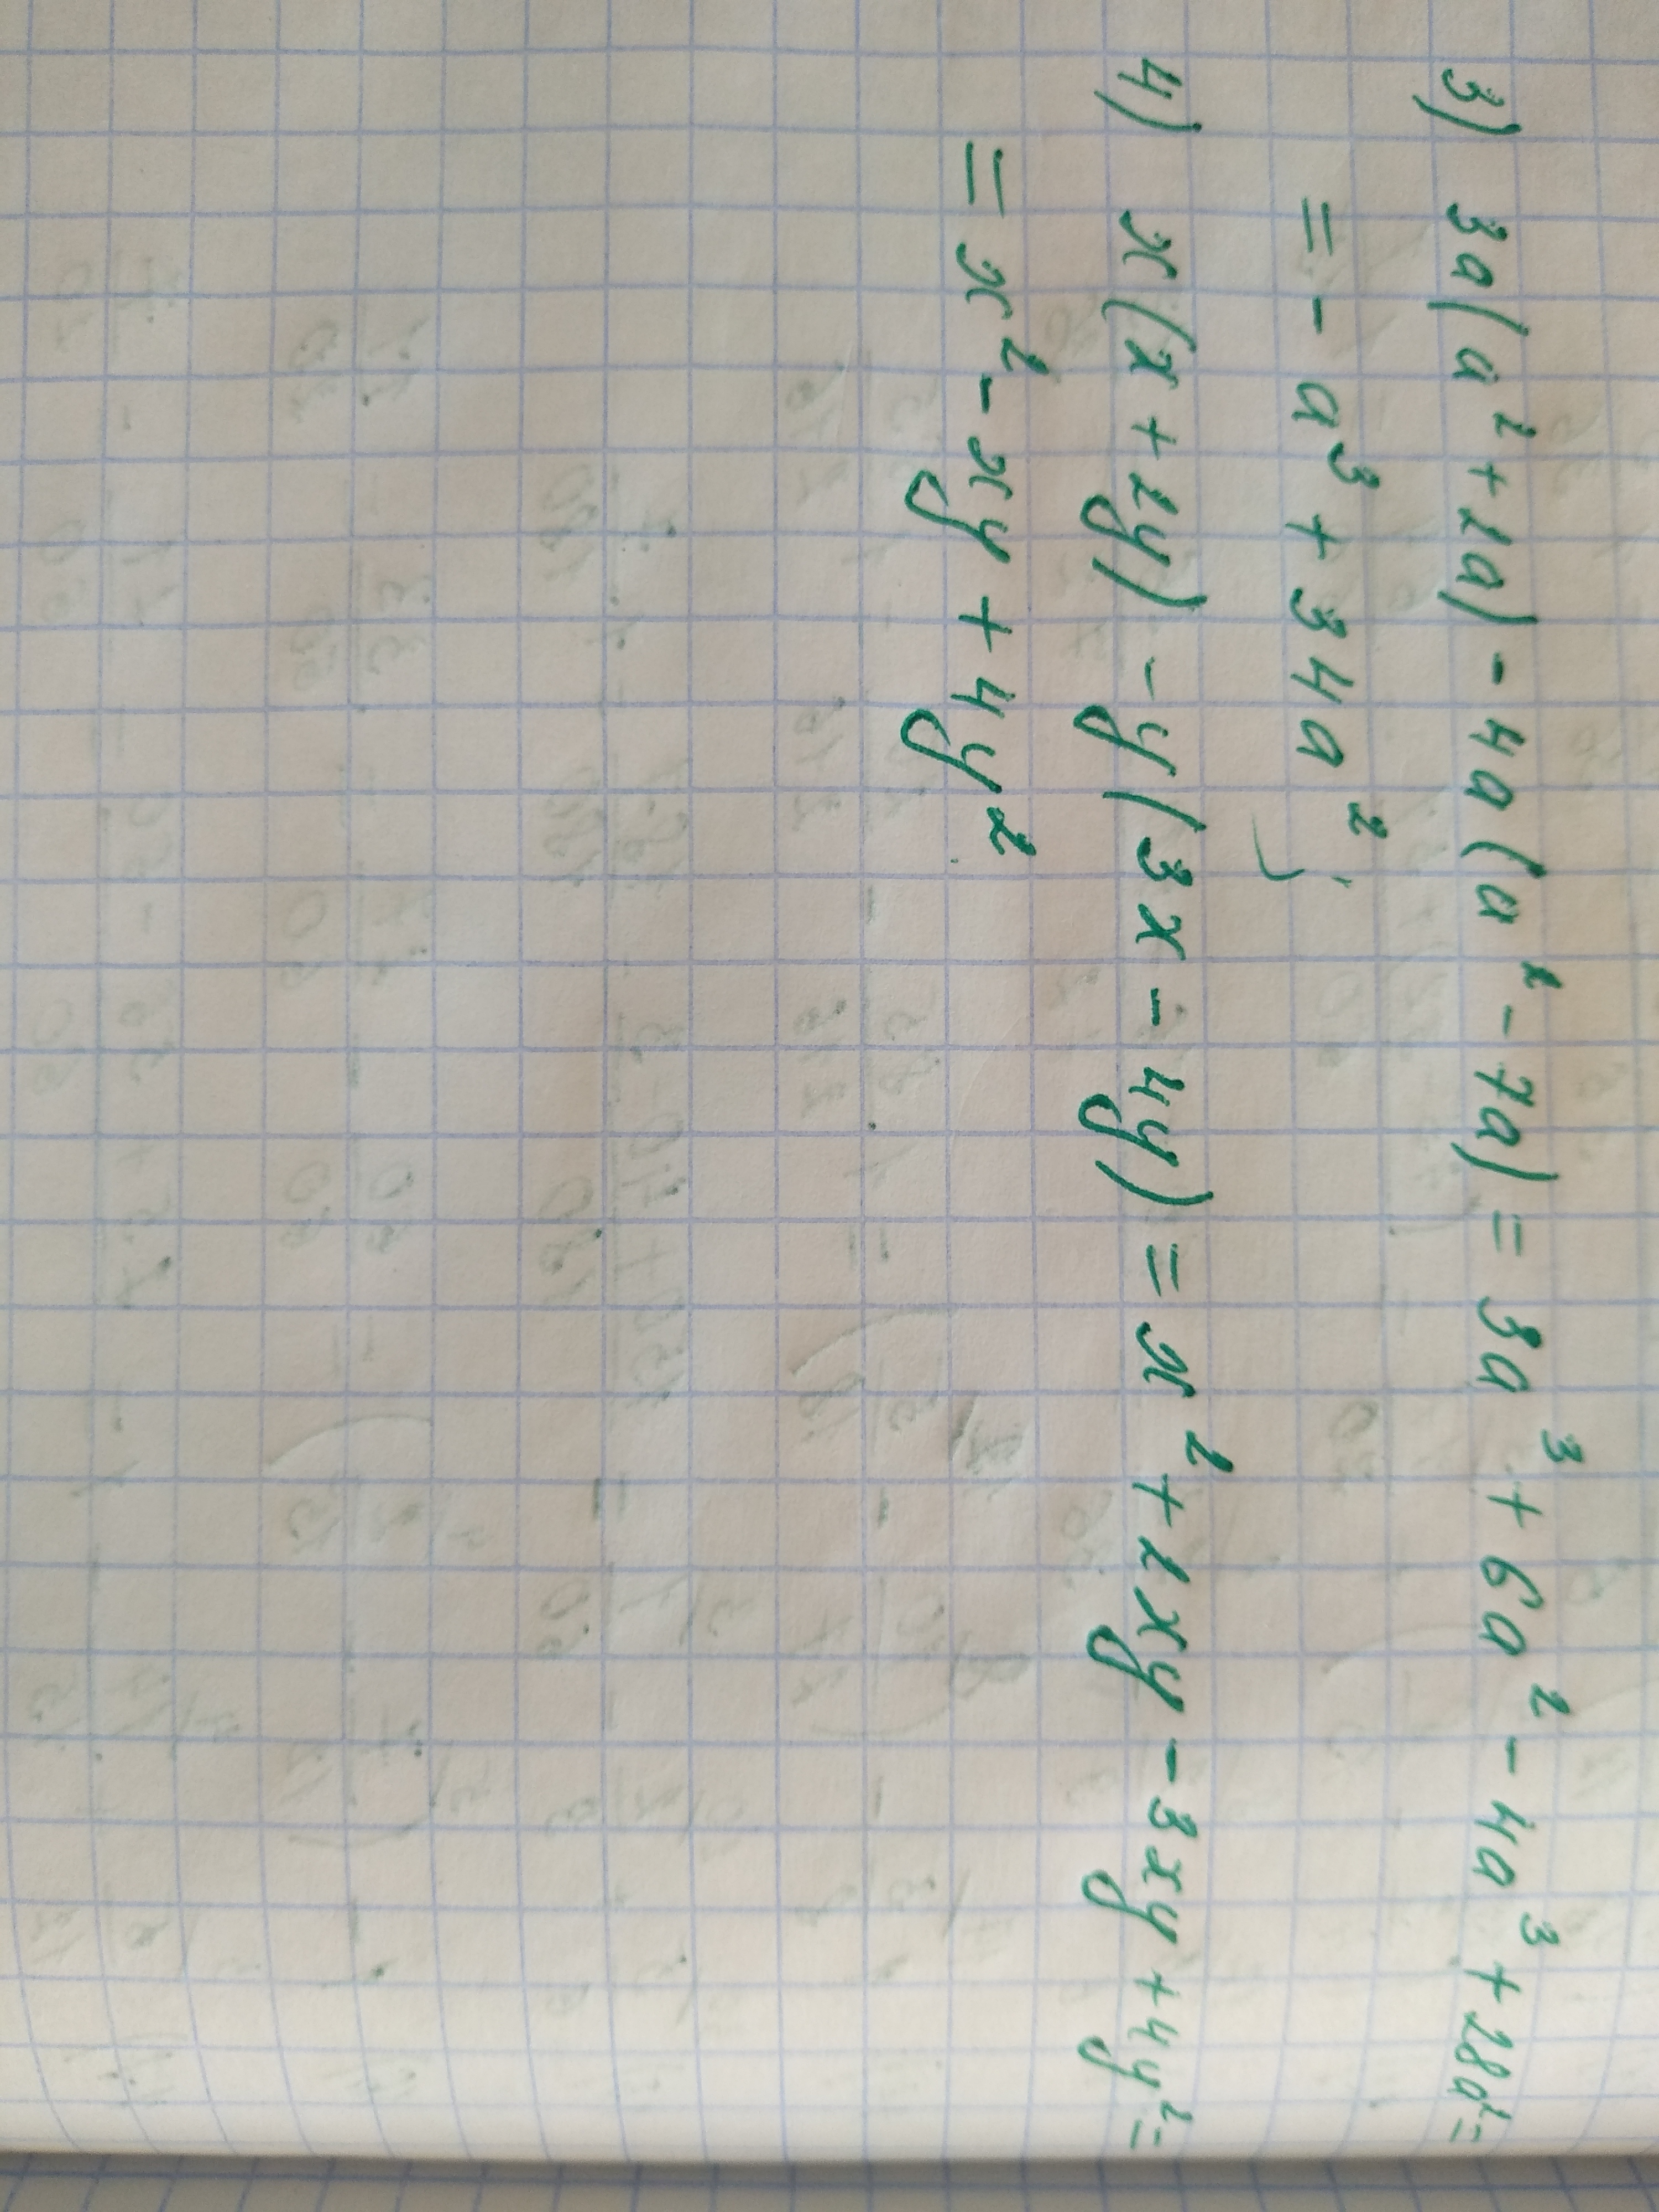 3) 3a(a² + 2a) - 4a(a² - 7a) = 3a³ + 6a² - 4a³ + 28a² =
= - a³ + 34a²;
4) x(x + 2y) - y(3x - 4y) = x² + 2xy - 3xy + 4y² =
= x² - xy + 4y²